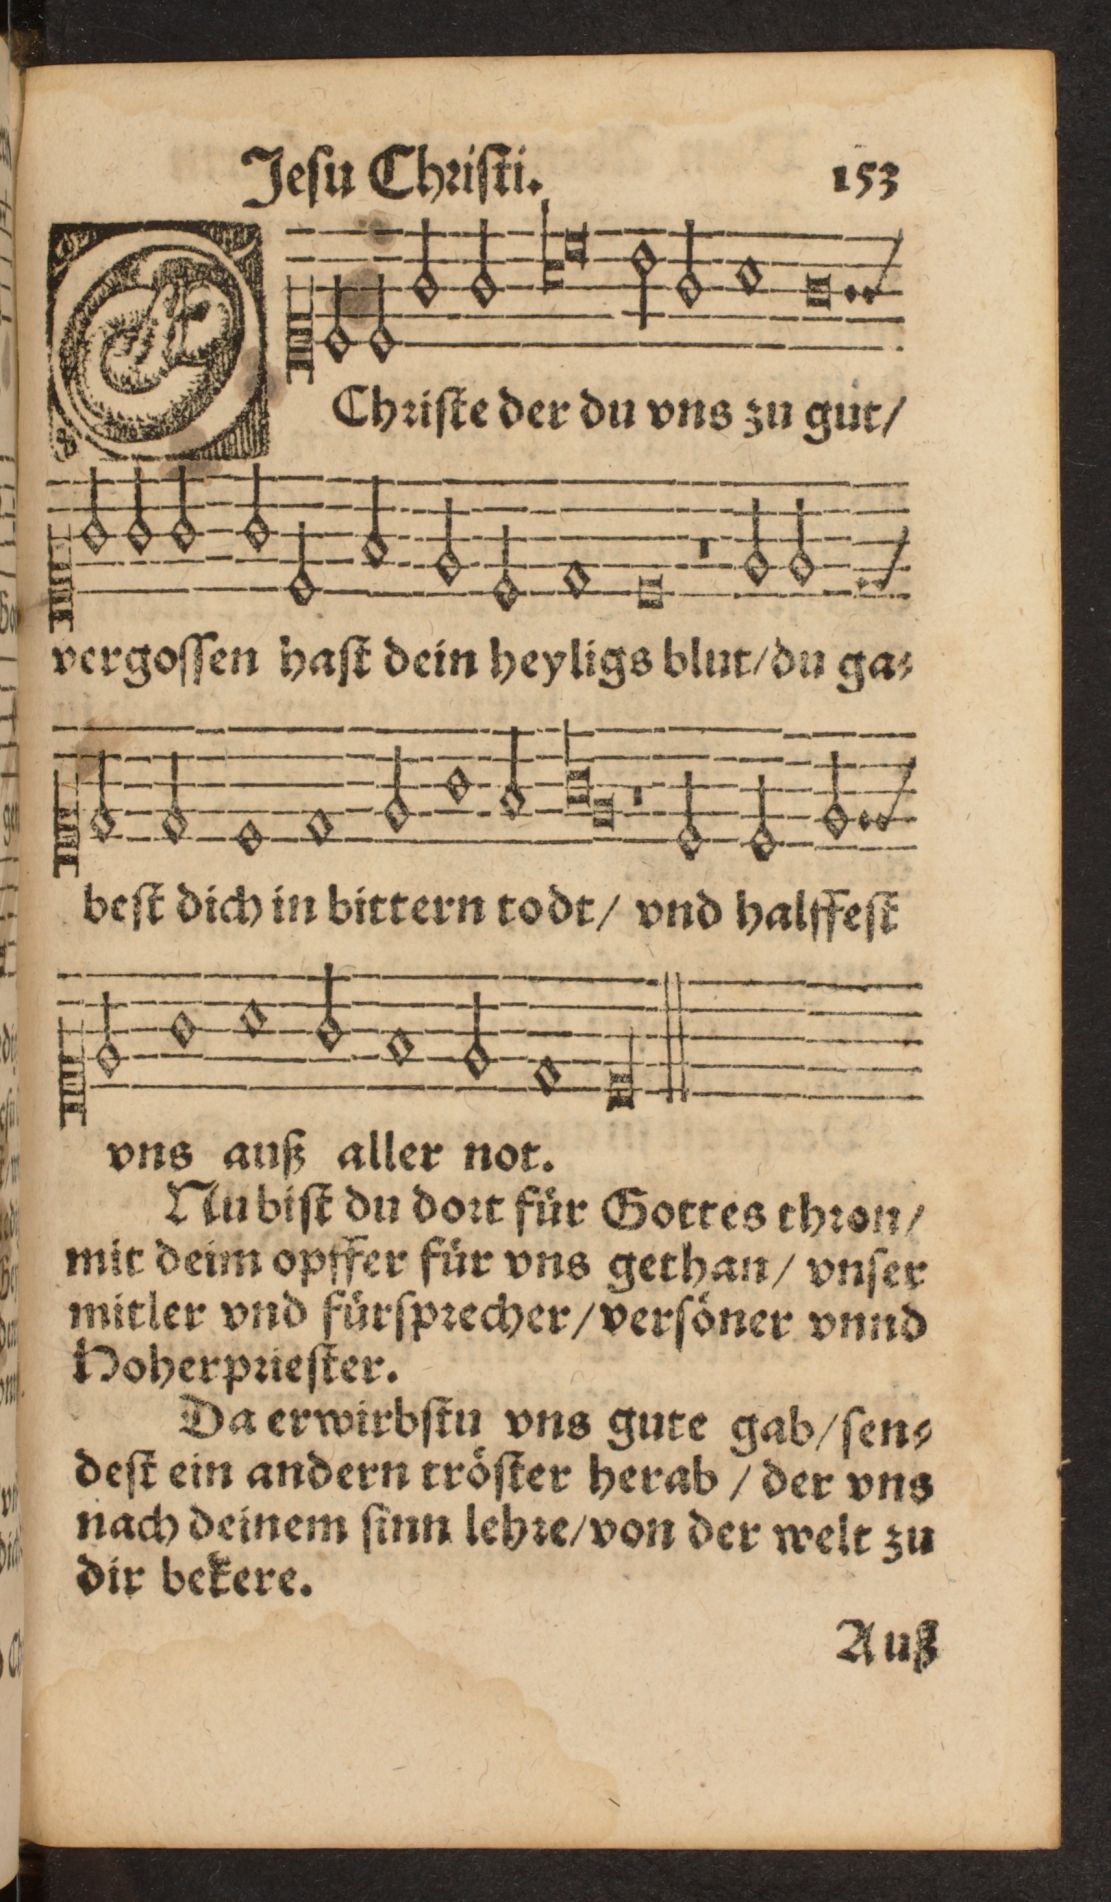 Jesu Christi. 153
O
Christe der du vns zu gut/
vergossen hast dein heyligs blut/du ga-
best dich in bittern todt/ vnd halffest
vns auß aller not.
Nu bist du dort für Gottes thron/
mit deim opffer für vns gethan/ vnser
mitler vnd fürsprecher/versöner vnnd
Hoherpriester.
Da erwirbstu vns gute gab/sen-
dest ein andern tröster herab / der vns
nach deinem sinn lehre/von der welt zu
dir bekere.
Auß